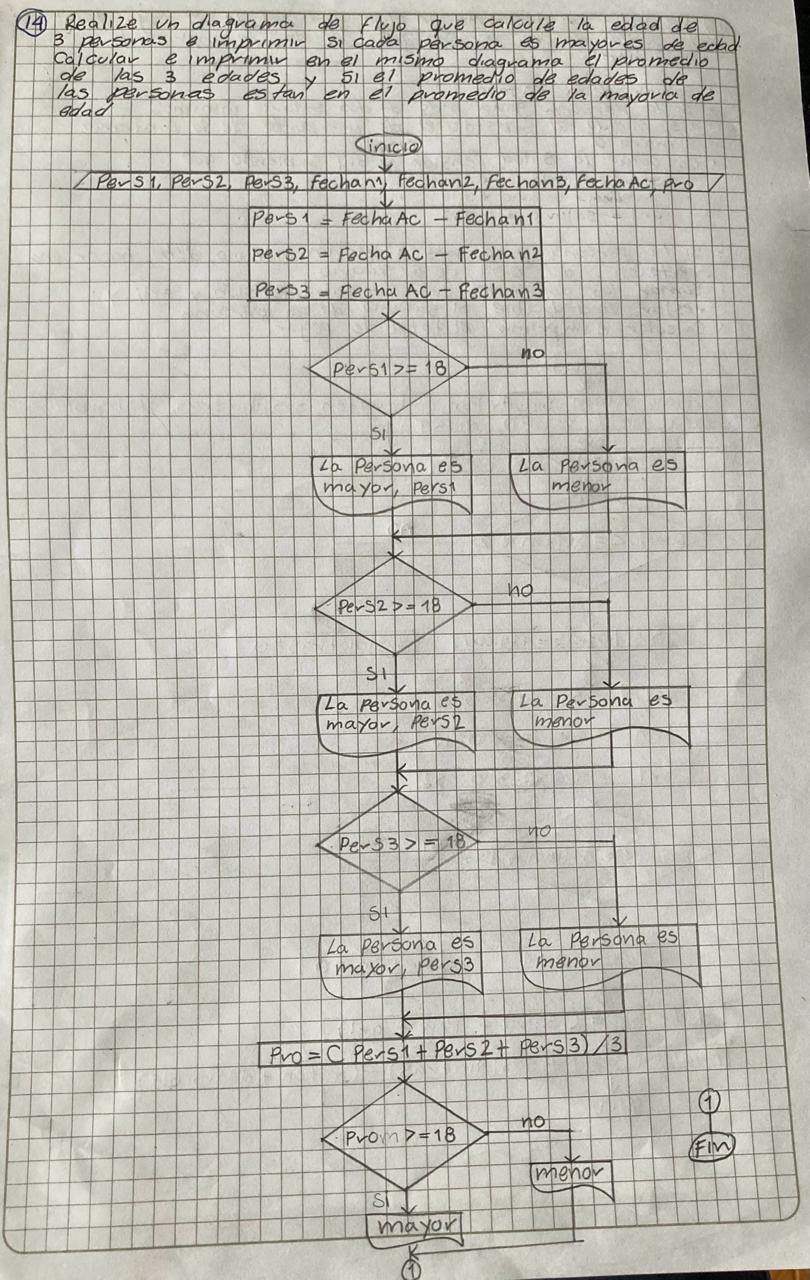 14 Realize un diagrama de flujo que calcule la edad de
3 personas e imprimir si cada persona es mayores de edad
Calcular e imprimir en el mismo diagrama el promedio
de las 3 edades y si el promedio de edades de
las personas estan en el promedio de la mayoria de
edad
inicio
Pers1, Pers2, Pers3, Fechan1, Fechan2, Fechan3, Fecha Ac, pro
Pers1 = Fecha Ac - Fechan1
Pers2 = Fecha Ac - Fechan2
Pers3 = Fecha Ac - Fechan3
Pers1 >= 18
no
SI
La Persona es
mayor, Pers1
La Persona es
menor
Pers2 >= 18
no
SI
La Persona es
mayor, Pers2
La Persona es
menor
Pers3 >= 18
no
SI
La Persona es
mayor, Pers3
La Persona es
menor
Pro = ( Pers1 + Pers2 + Pers3) /3
Prom >= 18
no
menor
SI
mayor
1
1
Fin